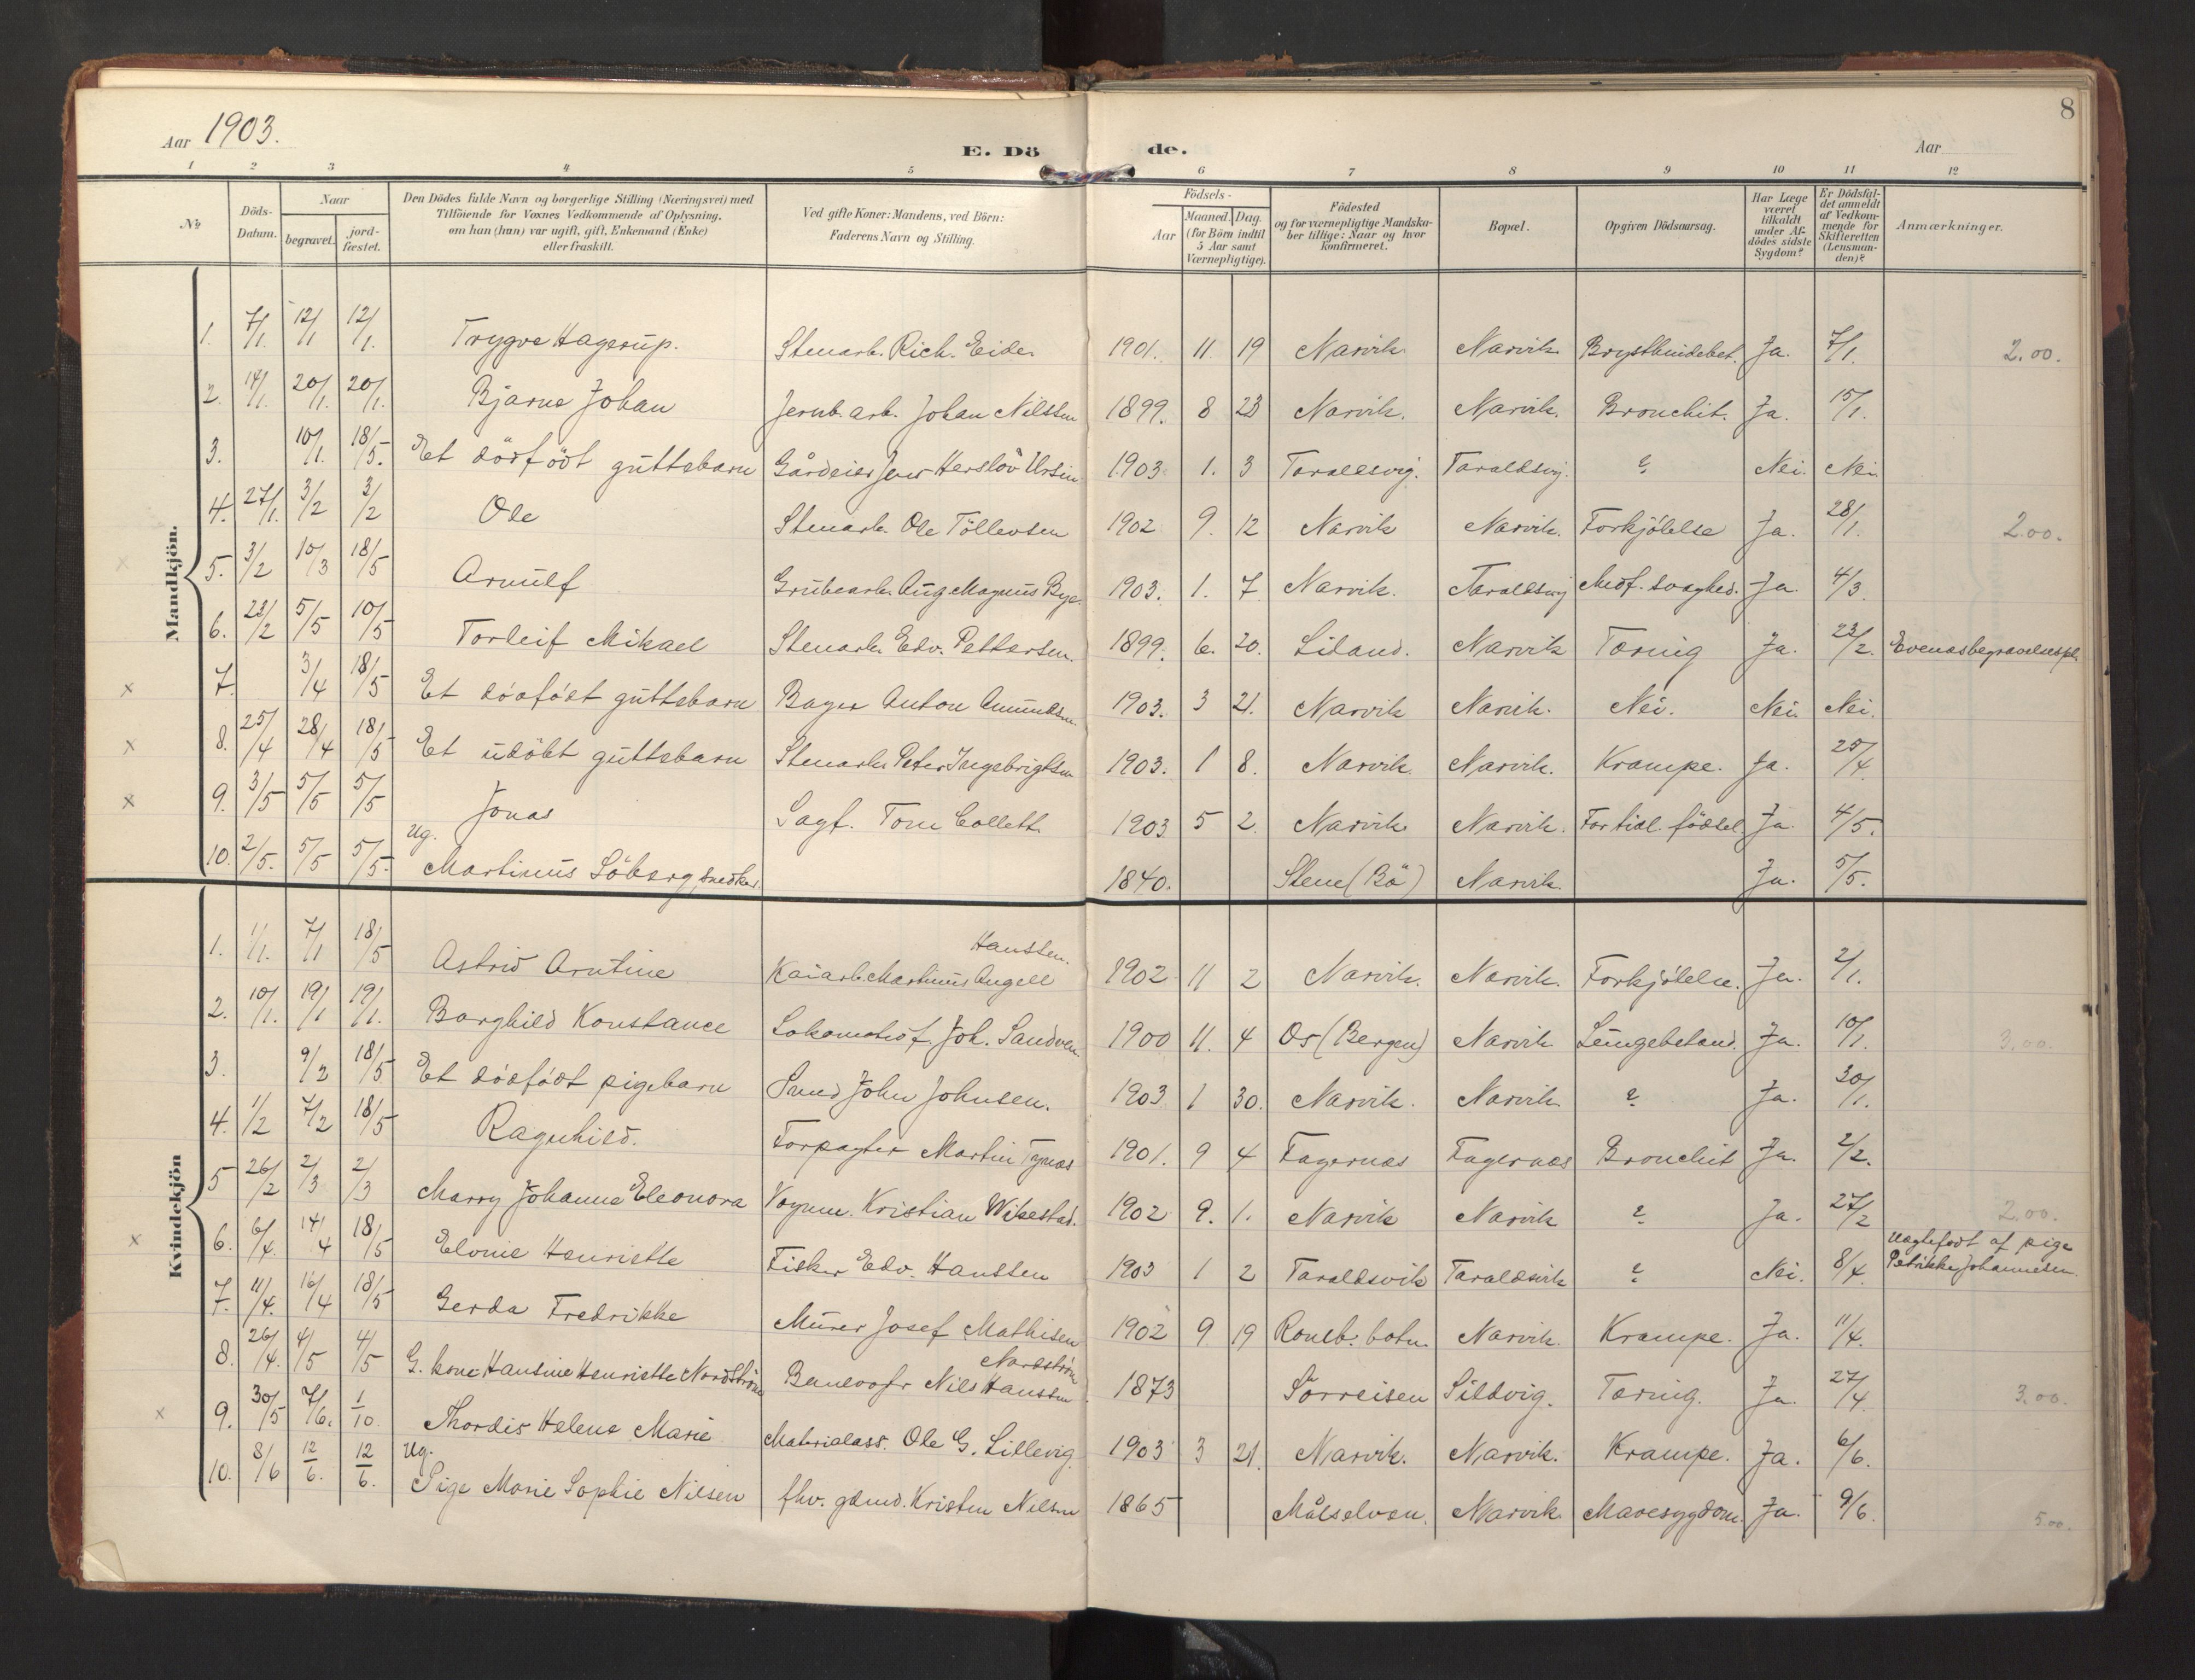 8
Aar 1903.
E. Dö de.
Aar
1 2 3 4 5 6 7 8 9 10 11 12
No
Döds-Datum.
Naar
begravet.
jord-fæstet.
Den Dödes fulde Navn og borgerlige Stilling (Næringsvei) med
Tilföiende for Voxnes Vedkommende af Oplysning,
om han (hun) var ugift, gift, Enkemand (Enke)
eller fraskilt.
Ved gifte Koner: Mandens, ved Börn:
Faderens Navn og Stilling.
Födsels-
Aar
Maaned. Dag.
(for Börn indtil
5 Aar samt
Værnepligtige).
Födested
og for værnepligtige Mandska-
ber tillige: Naar og hvor
konfirmeret.
Bopæl.
Opgiven Dödsaarsag.
Har Læge
været
tilkaldt
under Af-
dödes sidste
Sygdom?
Er Dödsfal-
det anmeldt
af Vedkom-
mende for
Skifteretten
(Lensman-
den)?
Anmærkninger.
Mandkjön.
1. 7/1. 12/1 12/1. Trygve Hagerup. Stenarb. Rich. Eide. 1901. 11. 19 Narvik. Narvik. Brystbindebet. Ja. 7/1. 2.00.
2. 14/1. 20/1. 20/1. Bjarne Johan Jernb. arb. Johan Nilssen 1899. 8 23 Narvik. Narvik. Bronchit. Ja. 15/1.
3. 10/1. 18/5. Et dödfödt guttebarn Gårdeier Jens Herslöv Ursin 1903 1. 3 Taraldsvig. Taraldsvig. ? Nei. Nei
4. 27/1. 3/2 3/2 Ole Stenarb. Ole Töllevsen 1902 9. 12 Narvik Narvik. Forkjölelse Ja. 28/1. 2.00.
x 5. 3/2 10/3 18/5 Arnulf Grubearb. Aug. Magnus Bye. 1903. 1. 7 Narvik. Taraldsvig Medf. svaghed. Ja. 4/3.
6. 22/2 5/5 10/5 Torleif Mikael Stenarb. Edv. Pettersen. 1899. 6. 20. Liland. Narvik Tæring Ja. 23/2. Evenæsbegravelsespl.
x 7. 3/4 18/5 Et dödfödt guttebarn Bager Anton Amundsen. 1903. 3 21. Narvik Narvik. Nei. Nei. Nei.
x 8. 25/4 28/4 18/5 Et udöbt guttebarn Stenarb. Peter Ingebrigtsen 1903. 1 8. Narvik. Narvik. Krampe. Ja. 25/4.
x 9. 3/5 5/5 5/5 Jonas Sagf. Tom Collett 1903 5 2. Narvik Narvik. For tidl. födsel Ja. 4/5.
10. 2/5. 5/5 5/5. Ug.
Martinus Söberg snedker. 1840. Stene (Bö) Narvik. Ja. 5/5.
Kvindekjön
1. 1/1. 7/1 18/5 Astrid Arntine Kaiarb. Martinus Angell Hanssen. 1902 11 2 Narvik. Narvik. Forkjölelse. Ja. 2/1.
2. 10/1. 19/1 19/1. Borghild Konstance Lokomotivf. Joh. Sandven. 1900 11. 4 Os (Bergen) Narvik Lungebetænd. Ja. 10/1. 3.00.
3. 9/2 18/5 Et dödfödt pigebarn Smed John Johnsen. 1903 1 30. Narvik. Narvik ? Ja. 30/1.
4. 1/2 7/2 18/5 Ragnhild. Forpagter Martin Tynæs 1901. 9 4 Fagernæs Fagernæs Bronchit Ja. 2/2.
5 26/2 2/3 2/3 Marry Johanne Eleonora Vognm. Kristian Wikestad. 1902 9. 1. Narvik Narvik ? Ja. 27/2 2.00.
x 6. 6/4. 14/4 18/5 Elvine Henriette Fisker Edv. Hanssen 1903 1 2 Taraldsvik Taraldsvik ? Nei. 8/4. Uægtefødt af pige
Petrikke Johannesen.
7. 11/4. 16/4 18/5 Gerda Fredrikke Murer Josef Mathisen 1902 9 19 Rombr. botn. Narvik. Krampe. Ja. 11/4.
8. 26/4. 4/5 4/5 G. kone Hansine Henriette Nordström Banevogt Nils Hanssen Nordström 1873 Sörreisen Sildvig. Tæring. Ja. 27/4. 3.00.
x 9. 30/5 7/6. 1/10 Thordis Helene Marie Materialass. Ole G. Lillevig. 1903 3 21. Narvik. Narvik. Krampe. Ja. 6/6.
10. 8/6 12/6. 12/6. Ug.
Pige Marie Sophie Nilsen fhv. gdmd. Kristen Nilsen 1865 Målselven. Narvik. Mavesygdom. Ja. 9/6. 5.00.